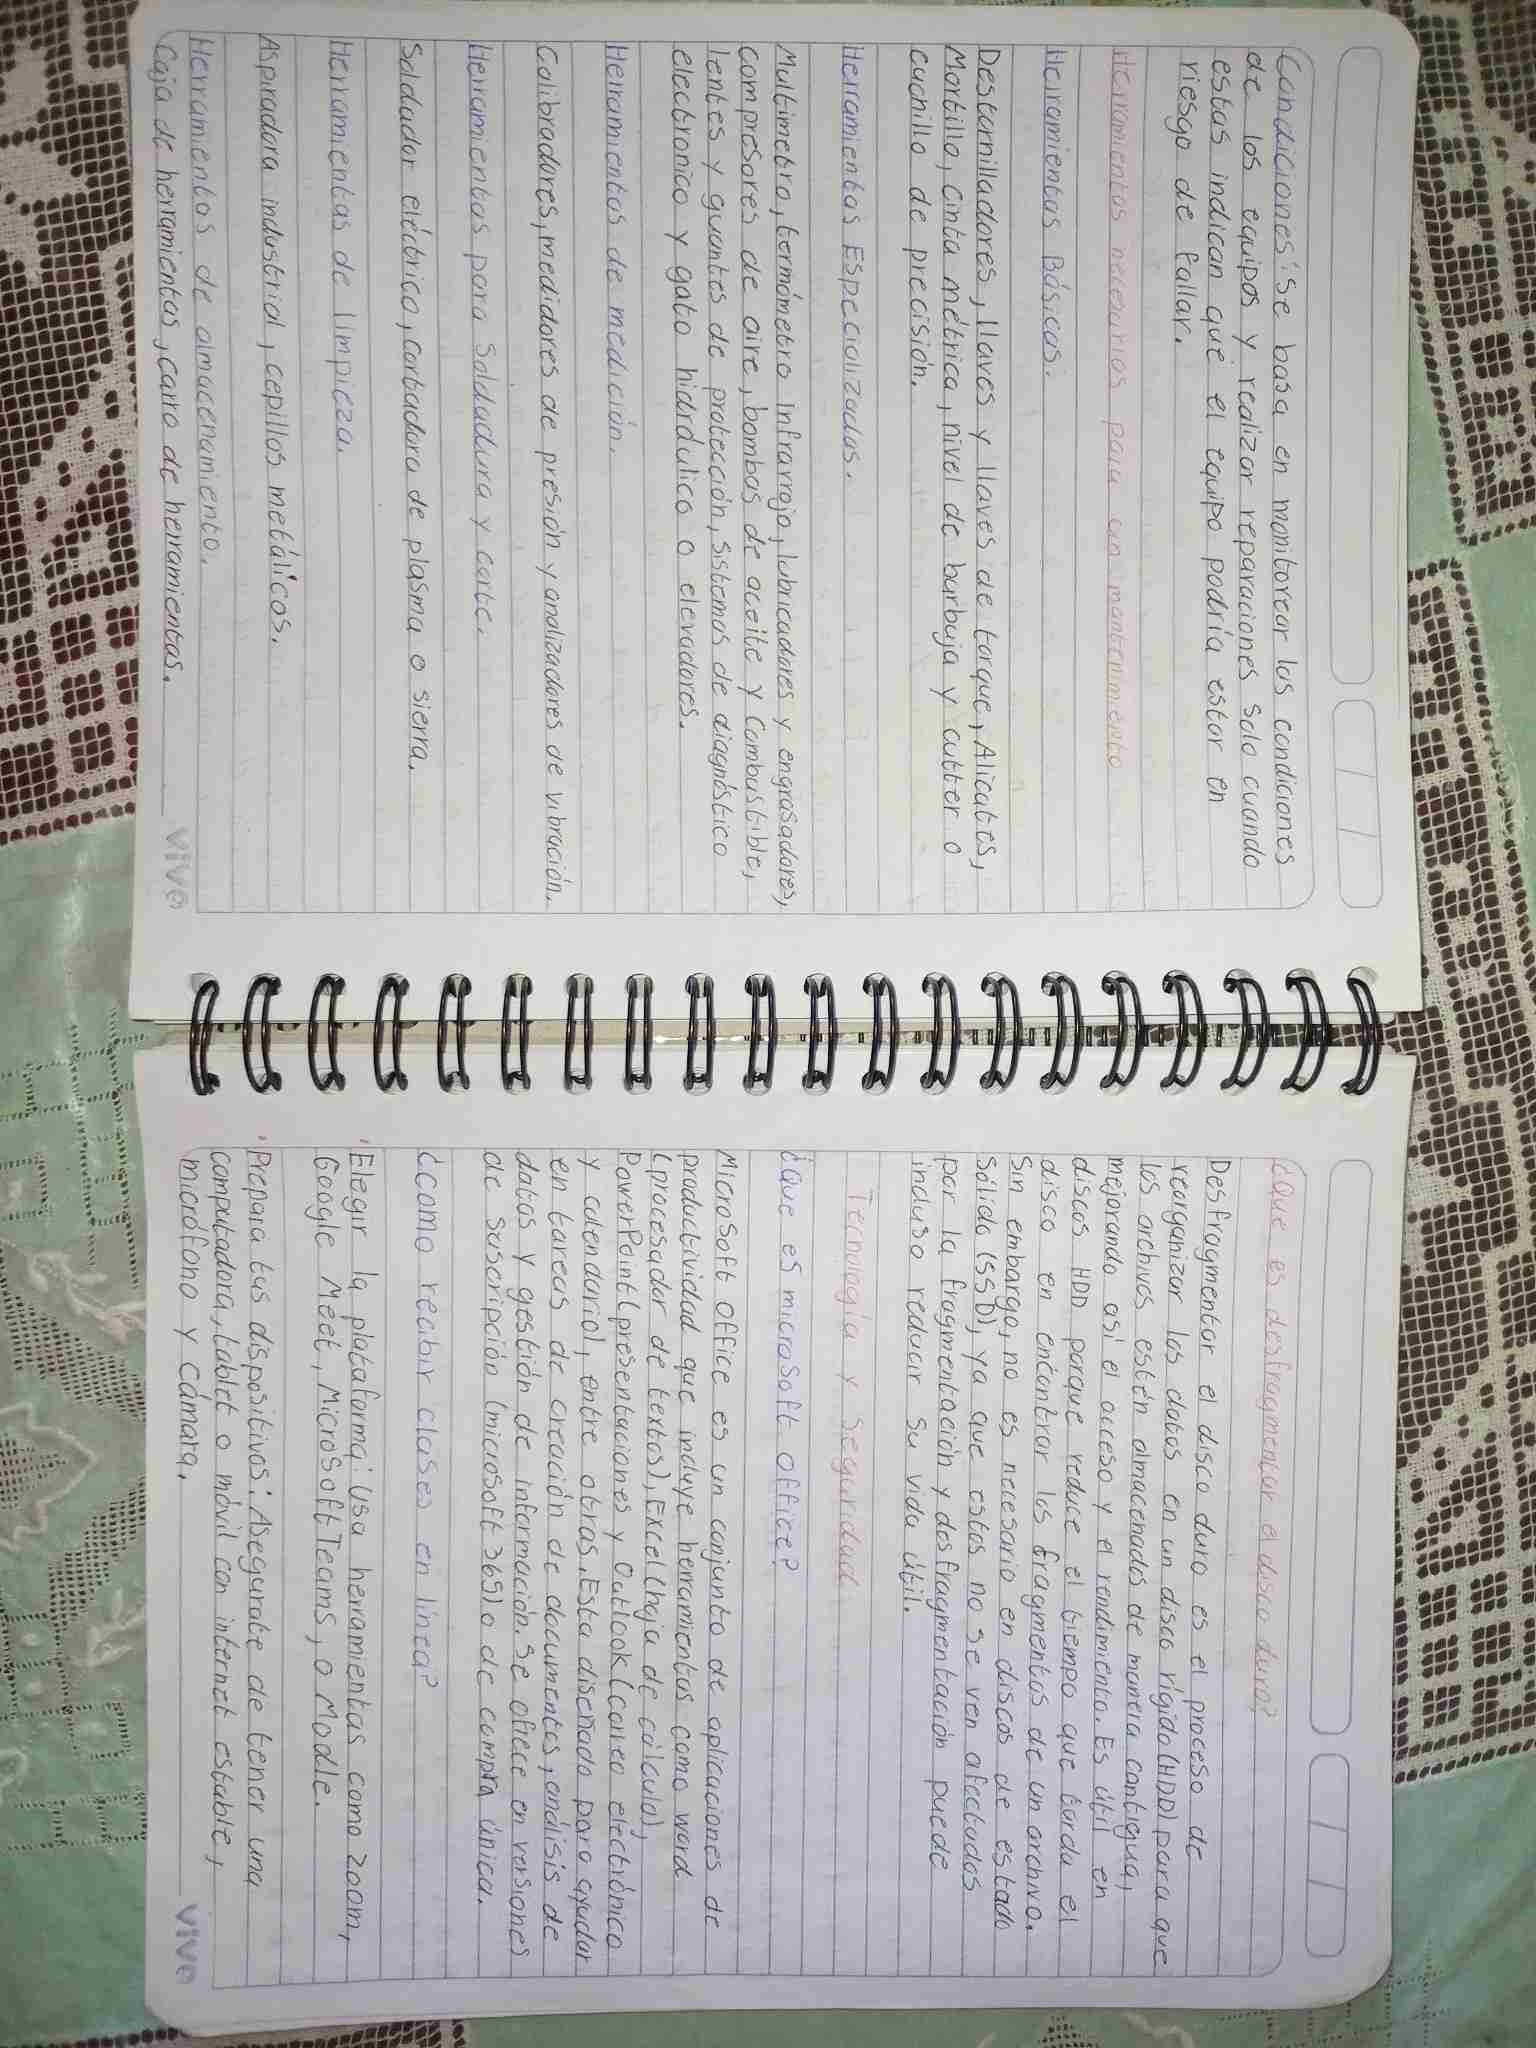 Condiciones: Se basa en monitorear las condiciones
de los equipos y realizar reparaciones solo cuando
estas indican que el equipo podría estar en
riesgo de fallar.
Herramientas necesarias para un mantenimiento
Herramientas Básicas:
Destornilladores, llaves y llaves de torque, Alicates,
Martillo, cinta métrica, nivel de burbuja y cutter o
cuchillo de precisión.
Herramientas Especializadas.
Multimetro, termómetro infrarrojo, lubricadores y engrasadores,
compresores de aire, bombas de aceite y combustible,
lentes y guantes de protección, sistemas de diagnóstico
electronico y gato hidráulico o elevadores.
Herramientas de medición.
Calibradores, medidores de presión y analizadores de vibración.
Herramientas para Soldadura y corte.
Soldador eléctrico, cortadora de plasma o sierra.
Herramientas de limpieza.
Aspiradora industrial, cepillos metálicos.
Herramientas de almacenamiento.
Caja de herramientas, carro de herramientas.
vivo
¿Que es desfragmentar el disco duro?
Desfragmentar el disco duro es el proceso de
reorganizar los datos en un disco rígido (HDD) para que
los archivos estén almacenados de manera contigua,
mejorando así el acceso y el rendimiento. Es útil en
discos HDD porque reduce el tiempo que tarda el
disco en encontrar los fragmentos de un archivo.
Sin embargo, no es necesario en discos de estado
Sólido (SSD), ya que estos no se ven afectados
por la fragmentación y desfragmentación puede
incluso reducir su vida útil.
Tecnología y Seguridad
¿Que es microSoft office?
MicroSoft office es un conjunto de aplicaciones de
productividad que incluye herramientas como word
(procesador de textos), Excel (hoja de cálculo),
PowerPoint (presentaciones y Outlook (correo electrónico
y calendario), entre otras. Esta diseñada para ayudar
en tareas de creación de documentos, análisis de
datos y gestión de información. Se ofrece en versiones
de suscripción (microsoft 365) o de compra única.
¿Como recibir clases en línea?
· Elegir la plataforma: Usa herramientas como zoom,
Google Meet, MicroSoft Teams, o Modle.
· Prepara tus dispositivos: Asegurate de tener una
computadora, tablet o móvil con internet estable,
micrófono y cámara.
vivo